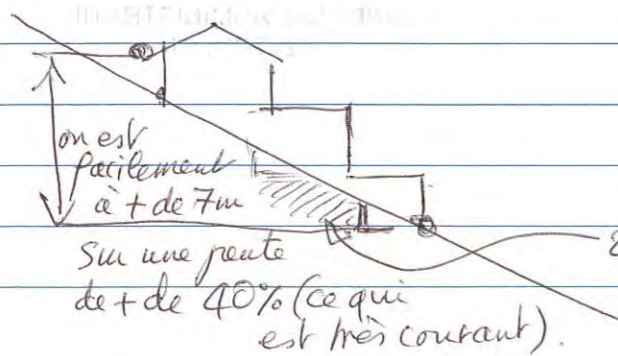 on est
facilement
à + de 7m
sur une pente
de + de 40% (ce qui
est très courant).